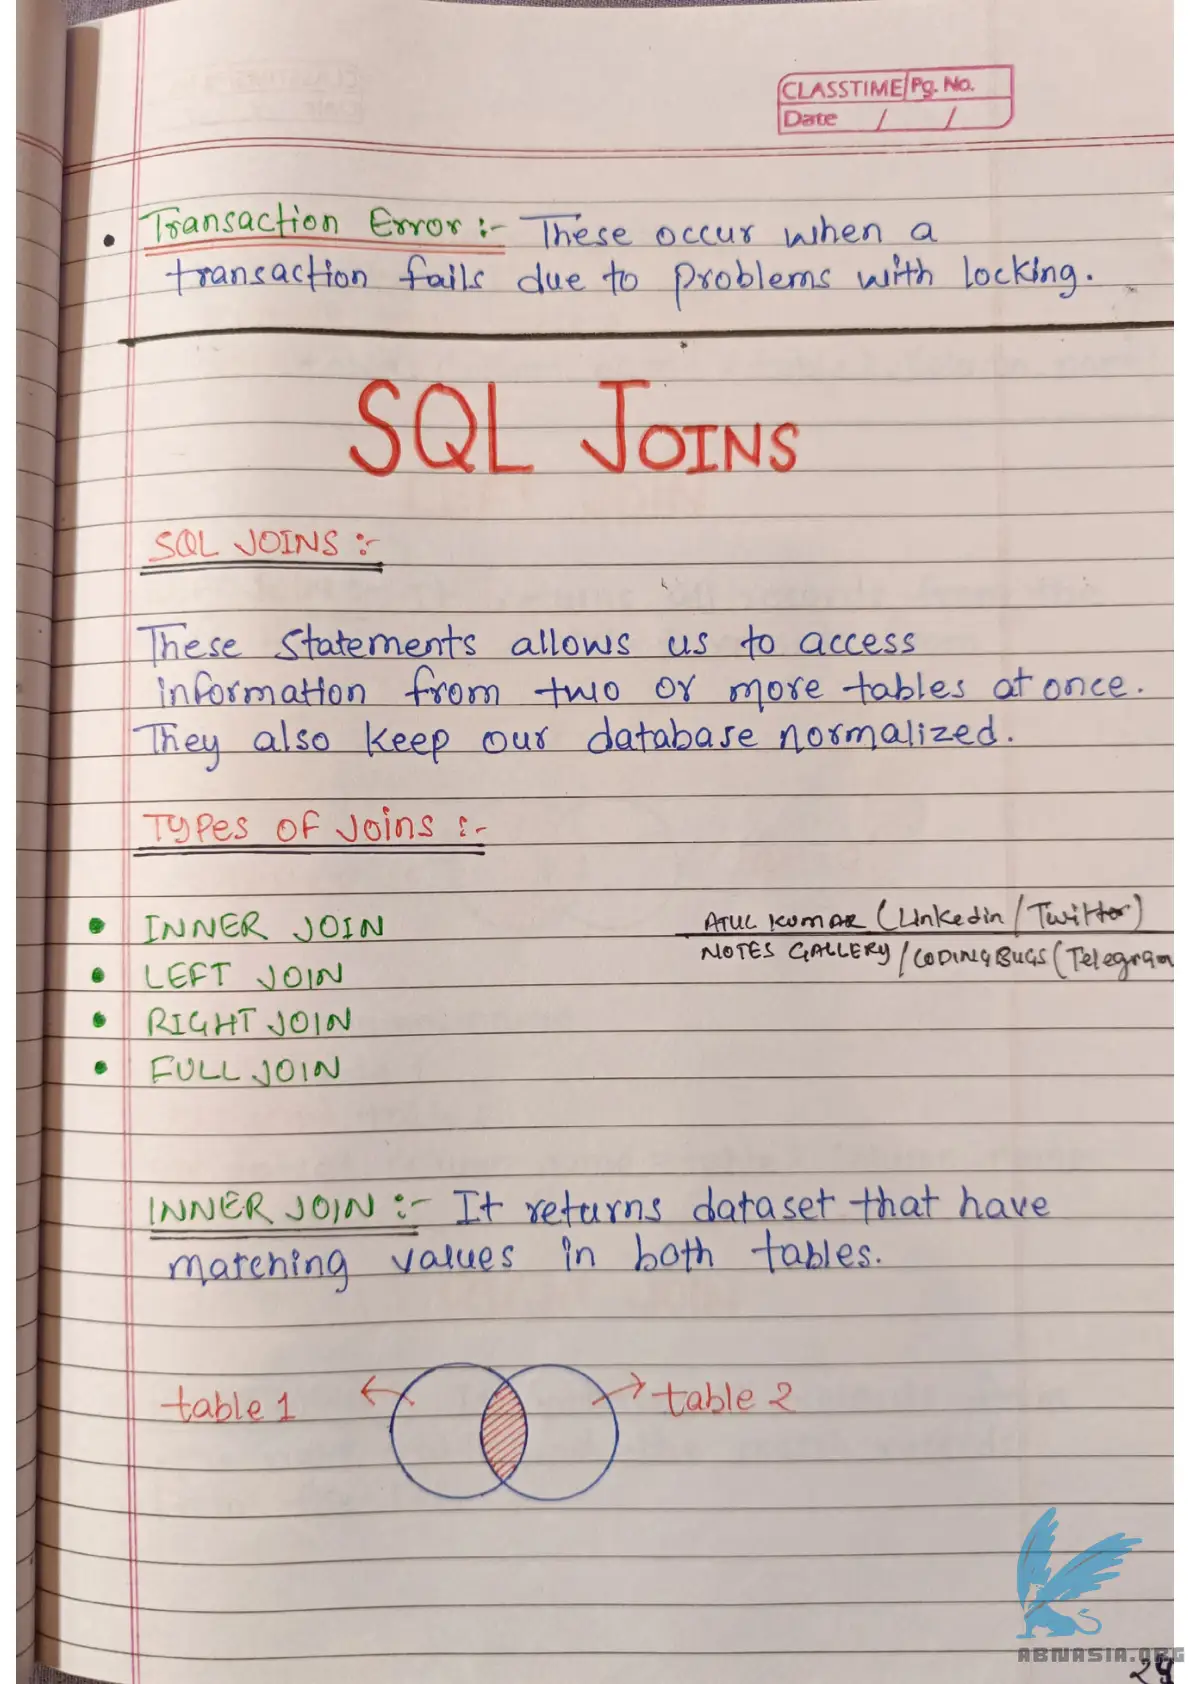 CLASSTIME Pg. No.
Date / /
• Transaction Error :- These occur when a
transaction fails due to problems with locking.
SQL JOINS
SQL JOINS :-
These statements allows us to access
information from two or more tables at once.
They also keep our database normalized.
Types of Joins :-
• INNER JOIN
ATUL KUMAR (Linkedin / Twitter)
• LEFT JOIN
NOTES GALLERY / CODINGBUGS (Telegram
• RIGHT JOIN
• FULL JOIN
INNER JOIN :- It returns dataset that have
matching values in both tables.
table 1 table 2
ABNASIA.ORG